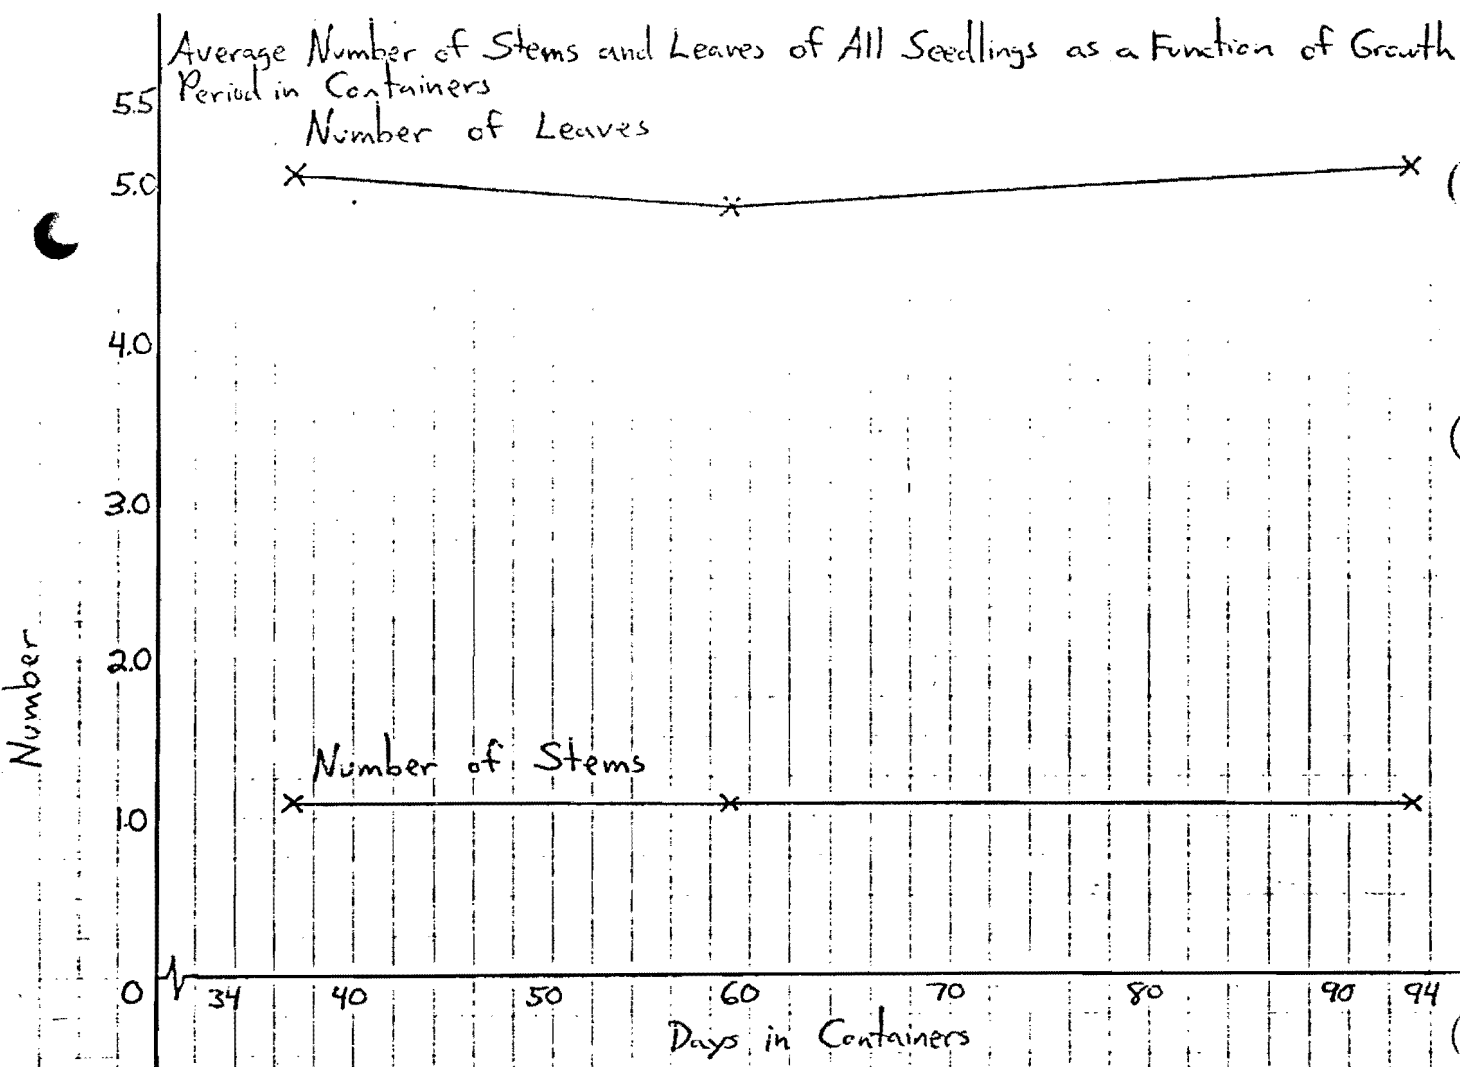 Average Number of Stems and Leaves of All Seedlings as a Function of Growth
Period in Containers
5.5
Number of Leaves
5.0
4.0
3.0
2.0
Number
Number of Stems
1.0
0 34 40 50 60 70 80 90 94
Days in Containers